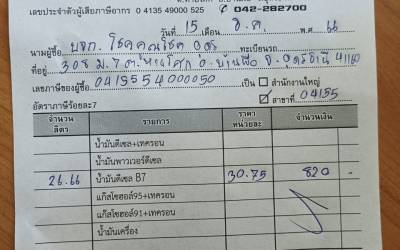 เลขประจำตัวผู้เสียภาษีอากร 0 4135 49000 525 042-282700
วันที่ 15 เดือน ธ.ค. พ.ศ 66
นามผู้ซื้อ บจก. โชคคูณโชค อุดร ทะเบียนรถ
ที่อยู่ 308 ม.7 ต. อ.บ้านผือ จ.อุดรธานี 41160
เลขภาษีของผู้ซื้อ 0415554000050 เป็น สำนักงานใหญ่
อัตราภาษีร้อยละ7 สาขาที่ 04155
จำนวน ลิตร รายการ ราคา หน่วยละ จำนวนเงิน
น้ำมันดีเซล+เทครอน
น้ำมันพาวเวอร์ดีเซล
26.66 น้ำมันดีเซล B7 30.75 820 -
แก๊สโซฮอล์95+เทครอน
แก๊สโซฮอล์91+เทครอน
น้ำมันเครื่อง